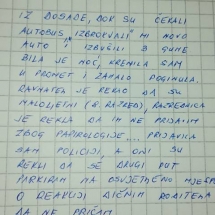 IZ DOSADE, DOK SU ČEKALI
AUTOBUS "IZBROKVALI" MI NOVO
AUTO I IZBUŠILI 2 GUME
BILA JE NOĆ, KRENULA SAM
U PROMET I ZAMALO POGINULA.
RAVNATELJ JE REKAO DA SU
MALOLJETNI (8. RAZRED), RAZREDNICA
JE REKLA DA IH NE PRIJAVIM
ZBOG PAPIROLOGIJE... PRIJAVILA
SAM POLICIJI, A ONI SU
REKLI DA SE DRUGI PUT
PARKIRAM NA OSVJETLJENO MJESTO
O REAKCIJI DIČNIH RODITELJA
DA NE PRIČAM